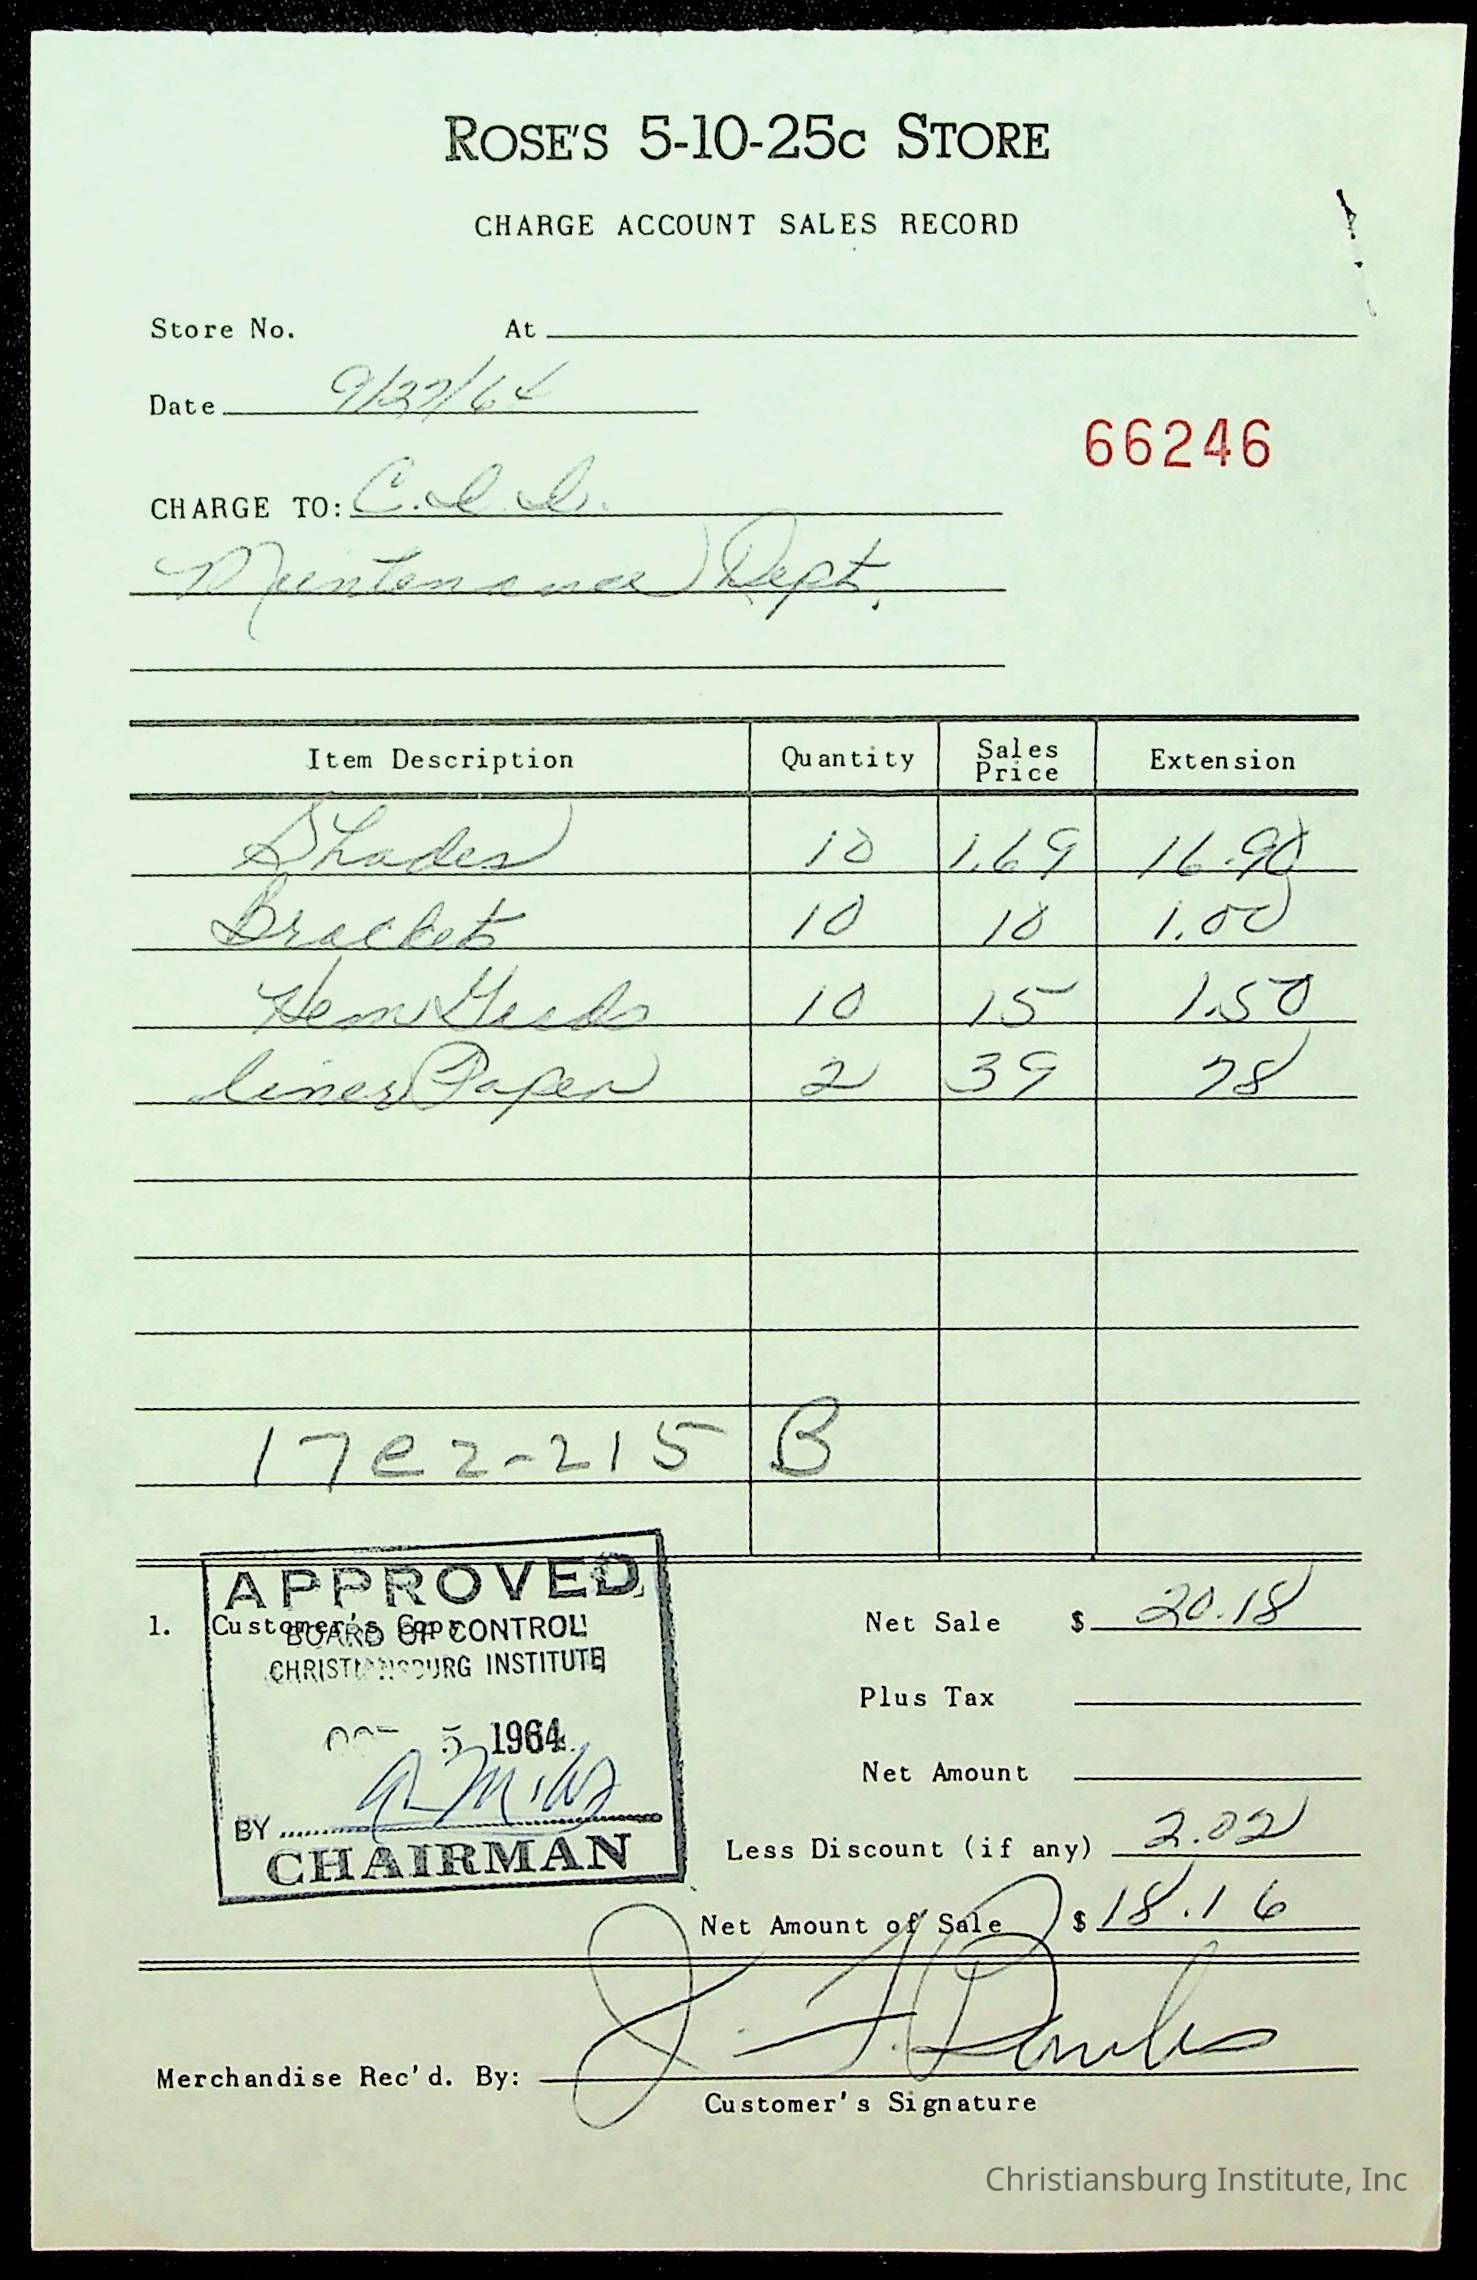 ROSE'S 5-10-25c STORE
CHARGE ACCOUNT SALES RECORD
Store No. At
Date 9/27/64
66246
CHARGE TO: C.I.I.
Maintenance Dept.
Item Description Quantity Sales Price Extension
Shades 10 1.69 16.90
Brackets 10 10 1.00
Hem 10 15 1.50
liner Paper 2 39 78
17e2-215 B
APPROVED
1. Customer's Copy
BOARD OF CONTROL
CHRISTIANSBURG INSTITUTE
OCT 5 1964
BY
CHAIRMAN
Net Sale $ 20.18
Plus Tax
Net Amount
Less Discount (if any) 2.02
Net Amount of Sale $ 18.16
Merchandise Rec'd. By: J. F.
Customer's Signature
Christiansburg Institute, Inc